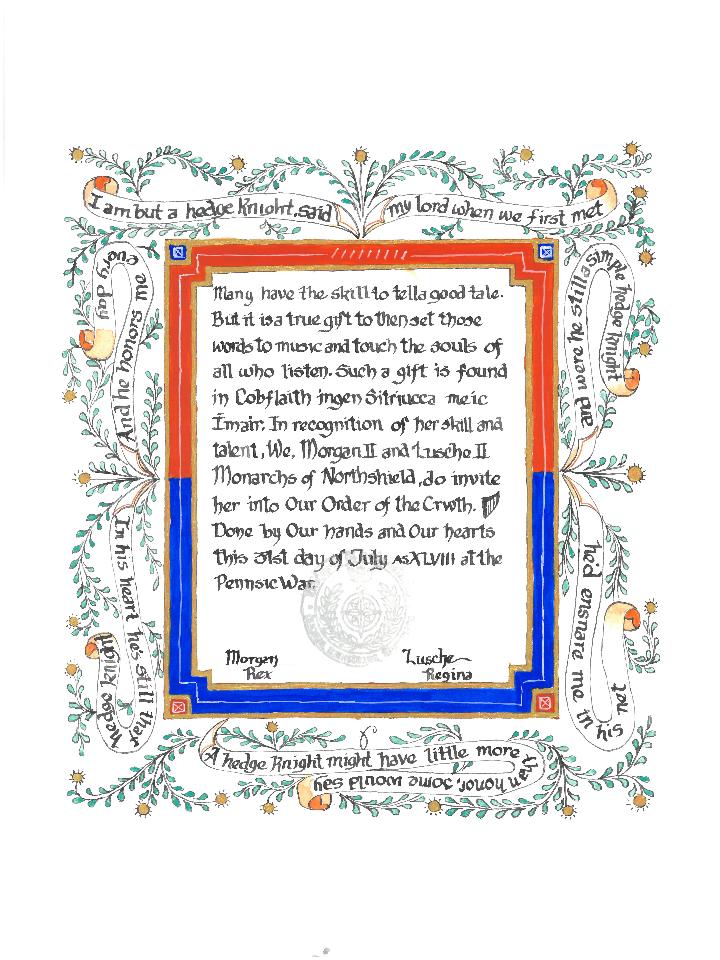 I am but a hedge knight, said
my lord when we first met
a simple hedge knight
and were he still
he'd ensnare me in his
net
A hedge knight might have little more
than honor, some would say
In his heart he's still that
hedge knight
And he honors me
every day
Many have the skill to tell a good tale.
But it is a true gift to then set those
words to music and touch the souls of
all who listen. Such a gift is found
in Cobflaith ingen Sitriucca meic
Ímair. In recognition of her skill and
talent, We, Morgan II and Lusche II
Monarchs of Northshield, do invite
her into Our Order of the Crwth.
Done by Our hands and Our hearts
this 31st day of July AS XLVIII at the
Pennsic War.
Morgan
Rex
Lusche
Regina